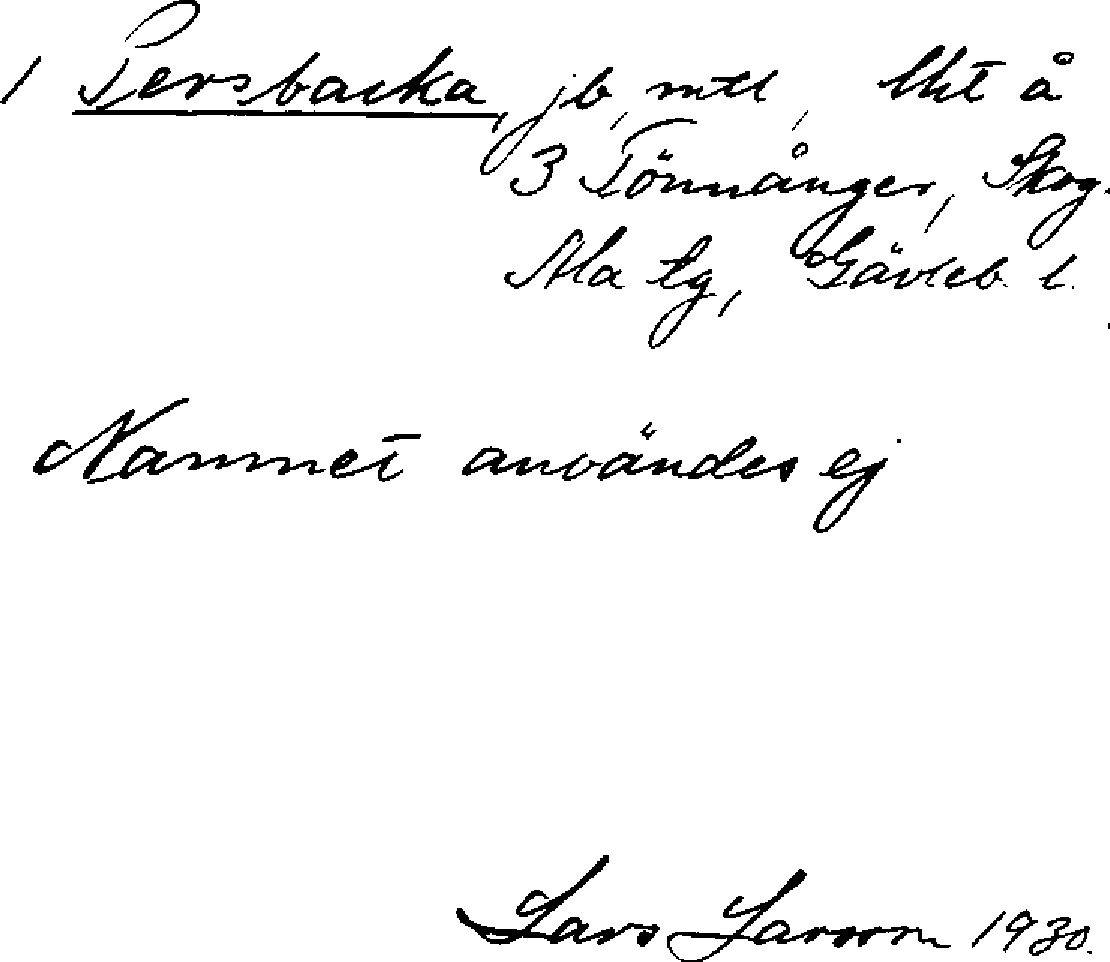 1 Persbacka, jb, mtl, lht å
3 Tönnånger, Skog.
Ala tg, Gävleb. l.
Namnet användes ej
Lars Larsson 1930.